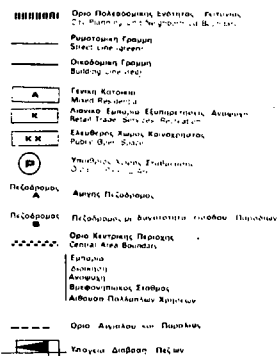 Οριο Πολεοδομικης Ενότητας
Ρυμοτομικη Γραμμη
Street Line
Οικοδομικη Γραμμη
Building Line
Α
Γενικη Κατοικια
Mixed Residential
Κ
Λιανικο Εμποριο Εξυπηρετησεις Αναψυχη
Retail Trade Services Recreation
ΚΧ
Ελευθερος Χωρος Κοινοχρηστος
Public Open Space
Ρ
Υπαιθριος Χωρος Σταθμευσης
Πεζοδρομος
Α
Αμιγης Πεζοδρομος
Πεζοδρομος
Β
Πεζοδρομος με δυνατοτητα εισοδου
Οριο Κεντρικης Περιοχης
Central Area Boundary
Εμπορια
Διοικηση
Αναψυχη
Βρεφονηπιακος Σταθμος
Αιθουσα Πολλαπλων Χρησεων
Οριο Αιγιαλου και Παραλιας
Υπογεια Διαβαση Πεζων